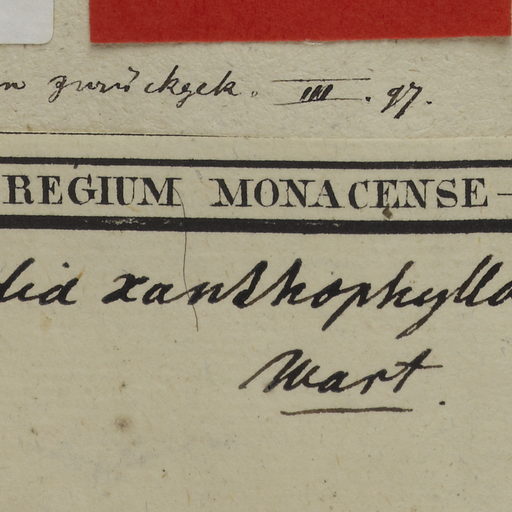 n zurückgek. III. 97.
REGIUM MONACENSE
dia xanthophylla
Mart.